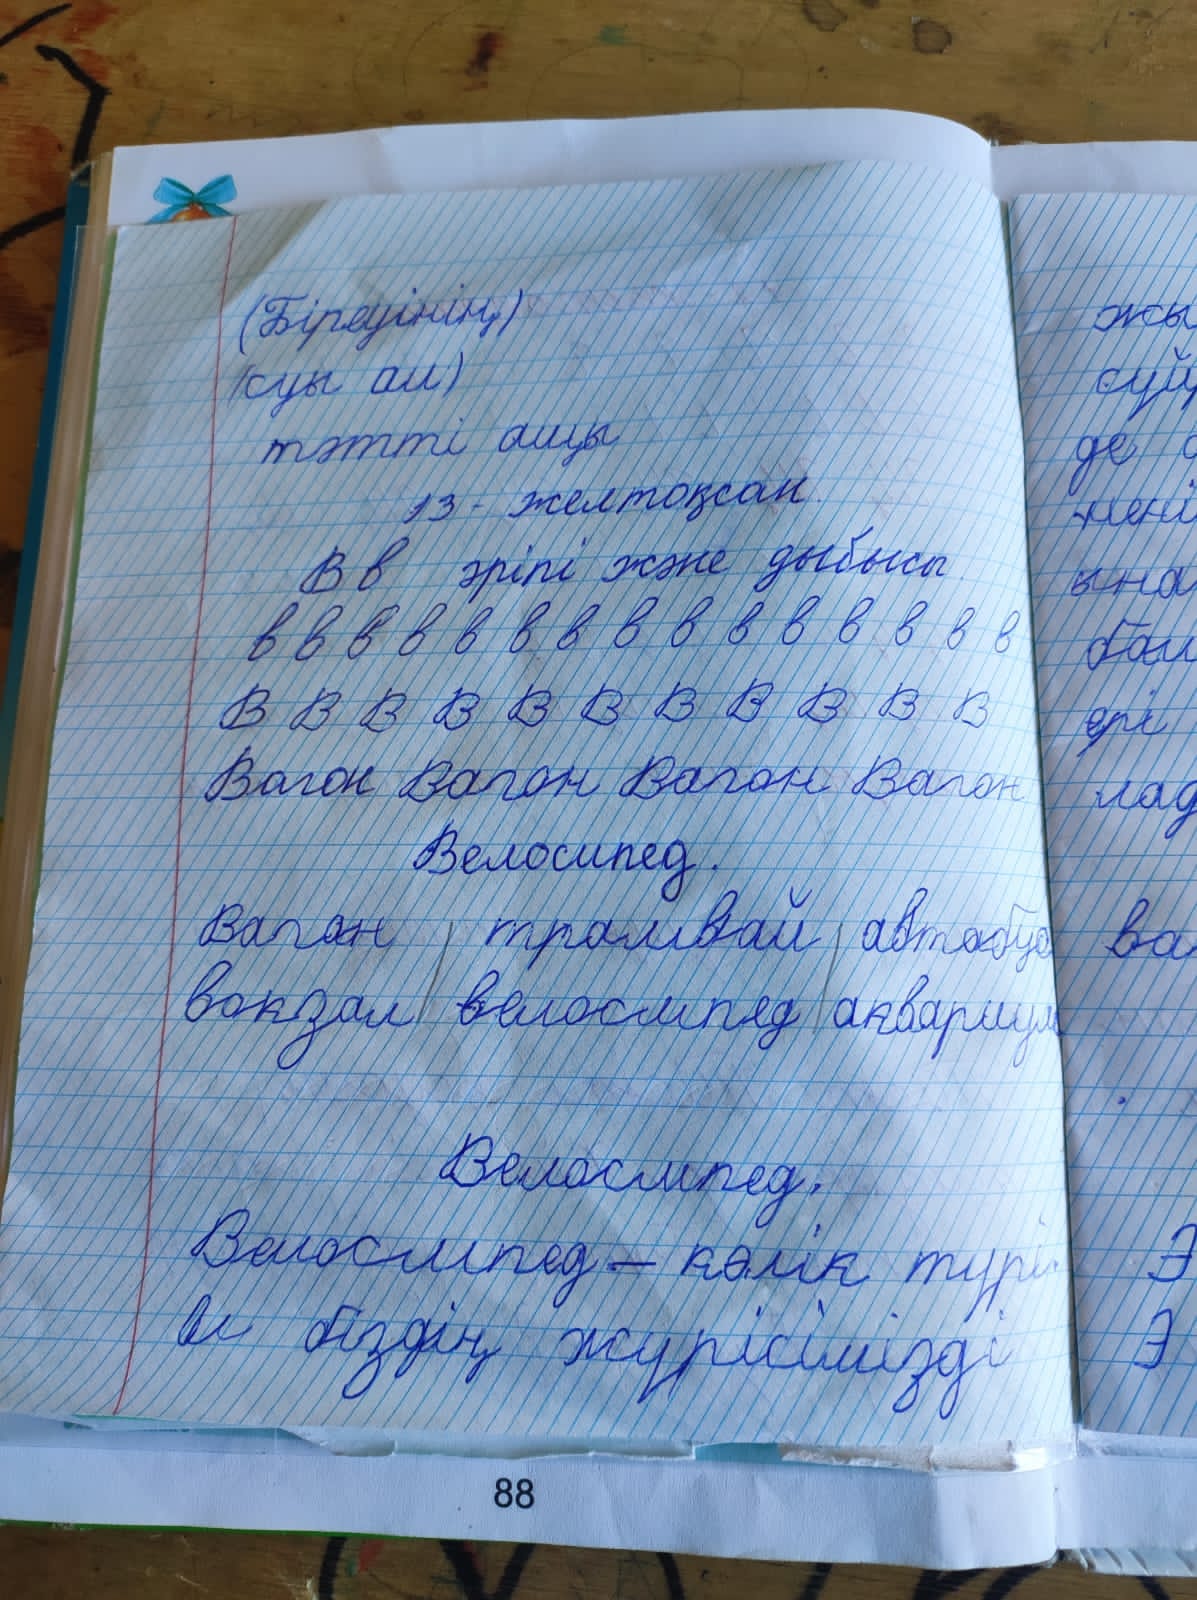 (Біреуінің)
(суы ащ)
тәтті ащы
13 - желтоқсан.
В в әріпі және дыбысы.
в в в в в в в в в в в в в в
В В В В В В В В В В В
Вагон Вагон Вагон Вагон
Велосипед.
Вагон трамвай автобус
вокзал велосипед аквариум
Велосипед.
Велосипед – көлік түрі.
біздің жүрісімізді
88
жы
сүй
де
нені
ына
бал
ері
лад
ва
Э
Э